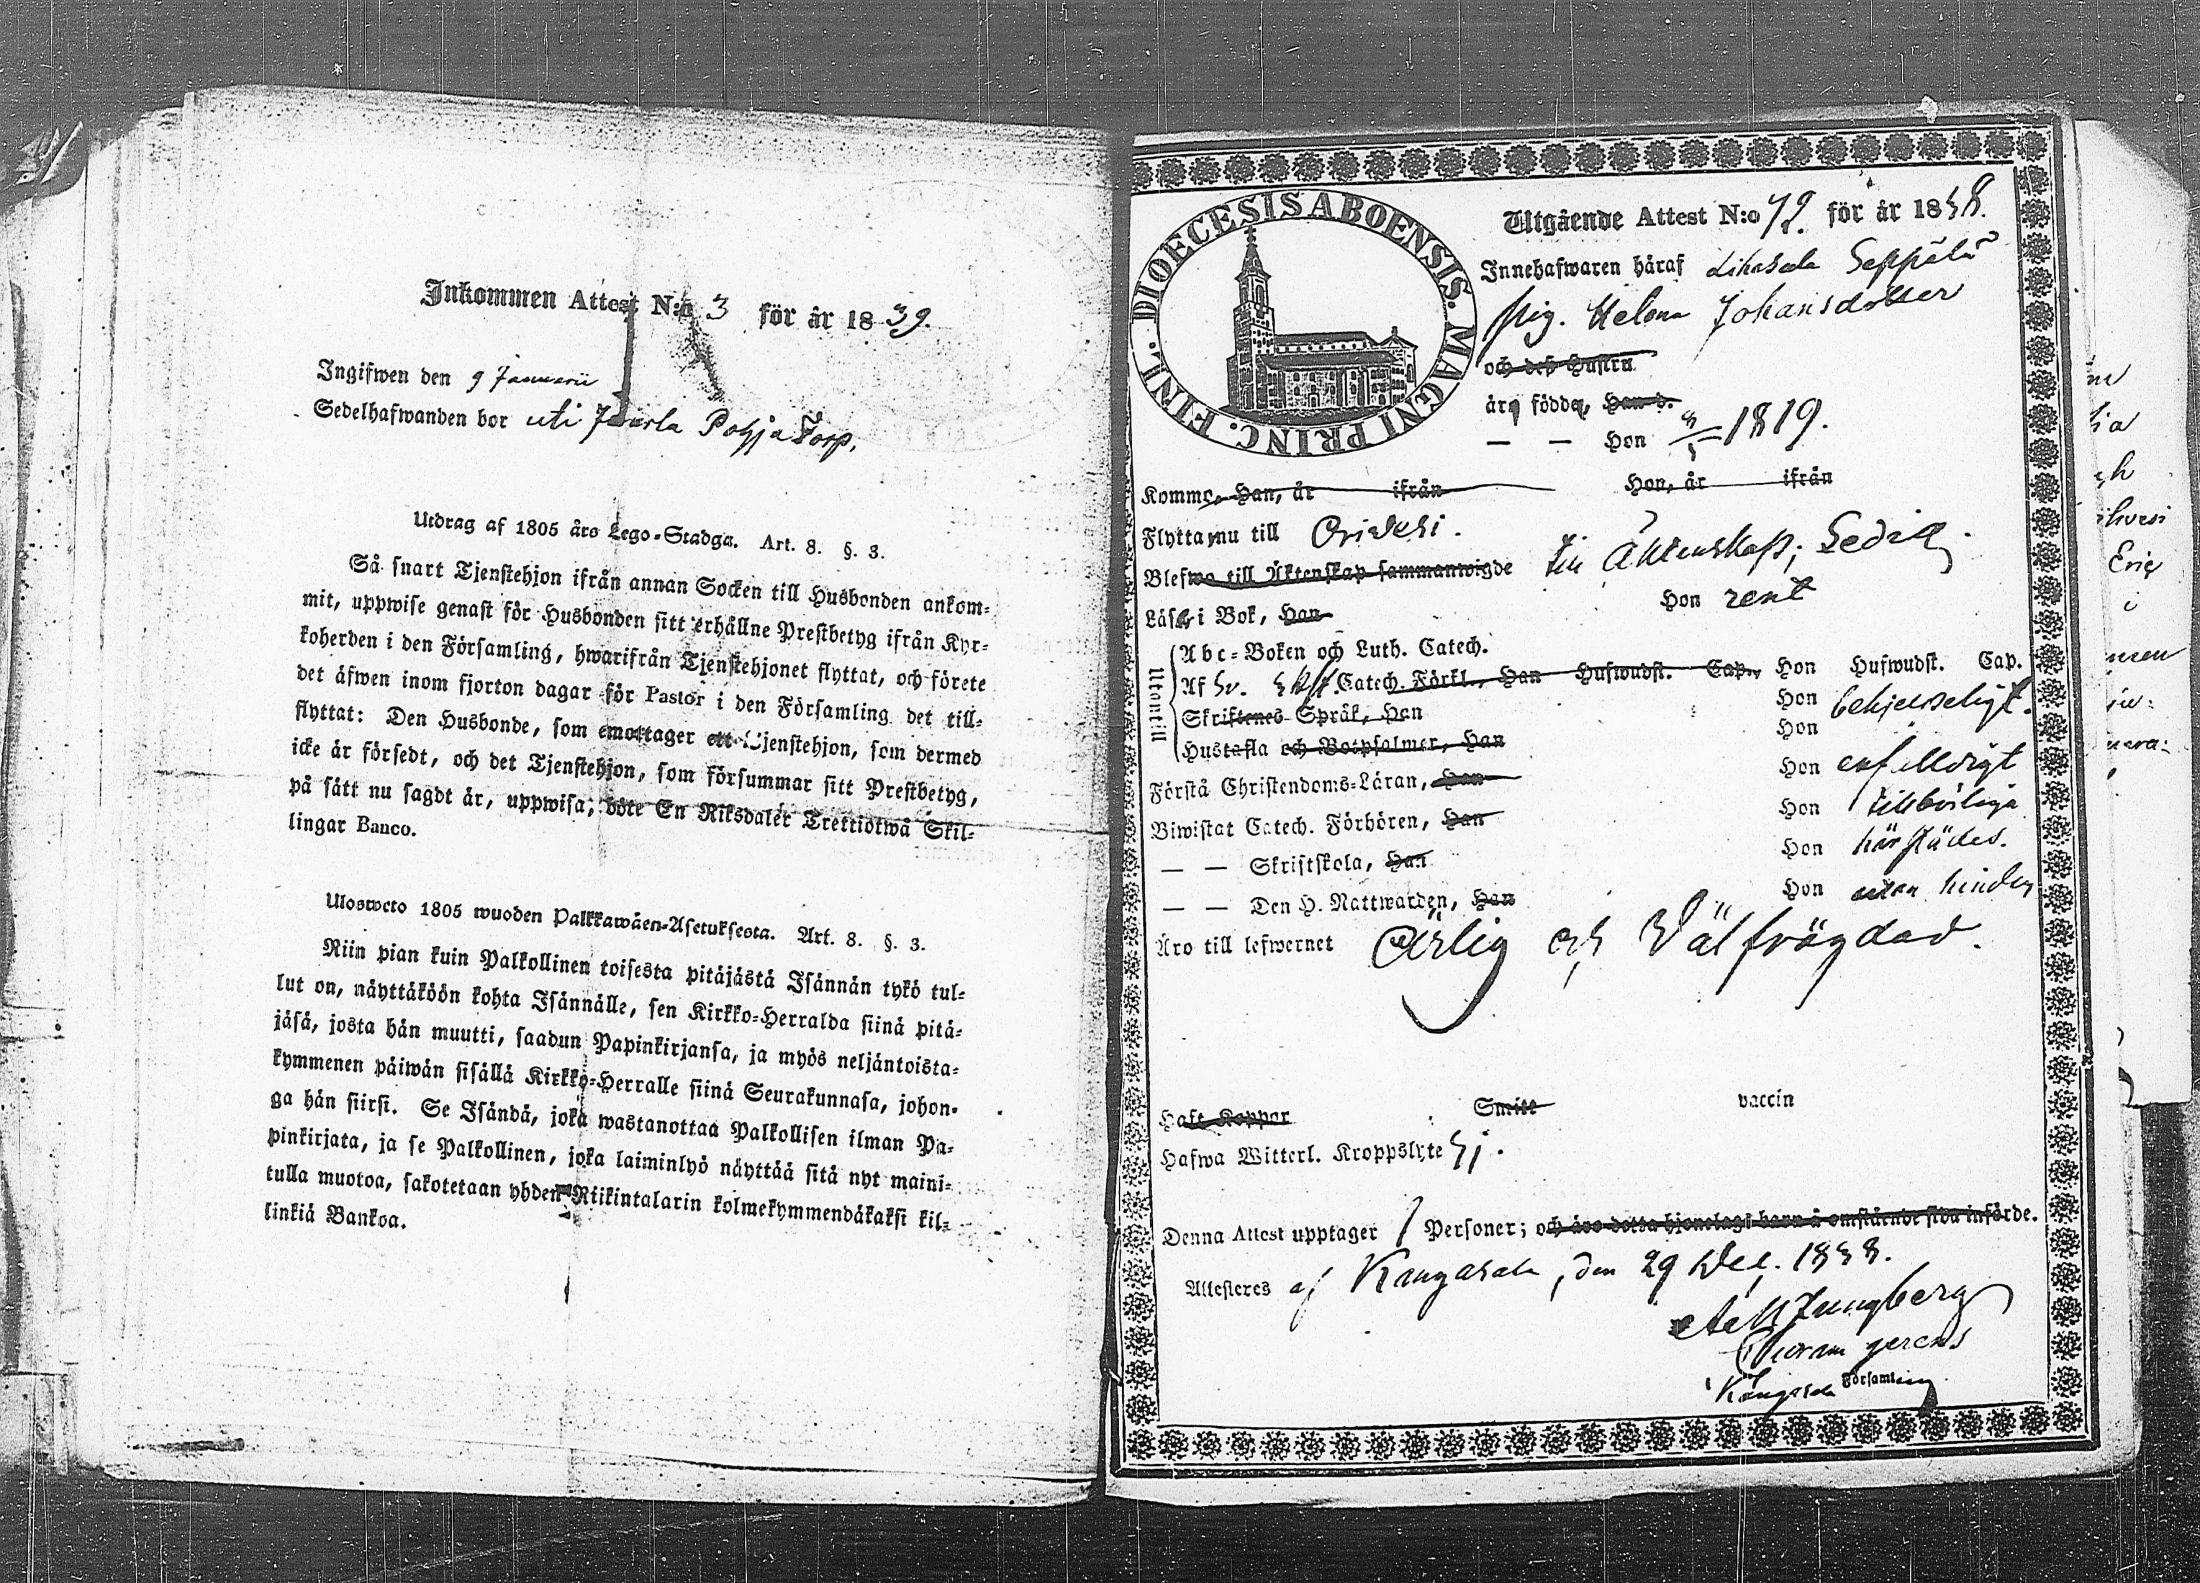 Inkommen Attest N:o 3 för år 1839.
Ingifwen den 9 Januarii
Sedelhafwanden bor uti Juurla Pohja Torp.
Utdrag af 1805 års Lego-Stadga. Art. 8. §. 3.
Så snart Tjenstehjon ifrån annan Socken till Husbonden ankom-
mit, uppwise genast för Husbonden sitt erhållne Prestbetyg ifrån Kyr-
koherden i den Församling, hwarifrån Tjenstehjonet flyttat, och förete
det äfwen inom fjorton dagar för Pastor i den Församling det till-
flyttat: Den Husbonde, som emottager ett Tjenstehjon, som dermed
icke är försedt, och det Tjenstehjon, som försummar sitt Prestbetyg,
på sätt nu sagdt är, uppwisa, böte En Riksdaler Trettiotwå Skil-
lingar Banco.
Ulosweto 1805 wuoden Palkkawäen-Asetuksesta. Art. 8. §. 3.
Niin pian kuin Palkollinen toisesta pitäjästä Isännän tykö tul-
lut on, näyttäköön kohta Isännälle, sen Kirkko-Herralda siinä pitä-
jäsä, josta hän muutti, saadun Papinkirjansa, ja myös neljäntoista-
kymmenen päiwän sisällä Kirkko-Herralle siinä Seurakunnasa, johon-
ga hän siirsi. Se Isändä, joka wastanottaa Palkollisen ilman Pa-
pinkirjata, ja se Palkollinen, joka laiminlyö näyttää sitä nyt maini-
tulla muotoa, sakotetaan yhden Riikintalarin kolmekymmendäkaksi kil-
linkiä Bankoa.
DIOECESIS ABOENSIS. MAGNI PRINC. FINL.
Utgående Attest N:o 72. för år 1838.
Innehafwaren häraf Lihasula Seppälä
pig. Helena Johansdotter
och deß Hustru
äro födde, Han d.
— — Hon 1819.
Komme, Han, år ifrån Hon, år ifrån
Flytta nu till Orivesi.
Blefwo till Äktenskap sammanwigde till Äktenskap; Ledig.
Läse i Bok, Han Hon rent
Utantill
Abc-Boken och Luth. Catech.
Af Sv. Catech. Förkl., Han Hufwudst. Cap., Hon Hufwudst. Cap.
Skriftenes Språk, Han Hon behjelpeligt.
Hustafla och Botpsalmer, Han Hon
Förstå Christendoms-Läran, Han Hon enfaldigt
Biwistat Catech. Förhören, Han Hon tillbörliga
— — Skriftskola, Han Hon härstädes.
— — Den H. Nattwarden, Han Hon utan hinder
Äro till lefwernet Ärlig och Välfrägdad.
Haft Koppor Smitt vaccin
Hafwa Witterl. Kroppslyte Ej.
Denna Attest upptager 1 Personer; och äro detta hjonelags barn å omstående sida införde.
Attesteres af Kangasala, den 29 Dec. 1838.
Ljungberg
Curam gerens
Kangasala Församling